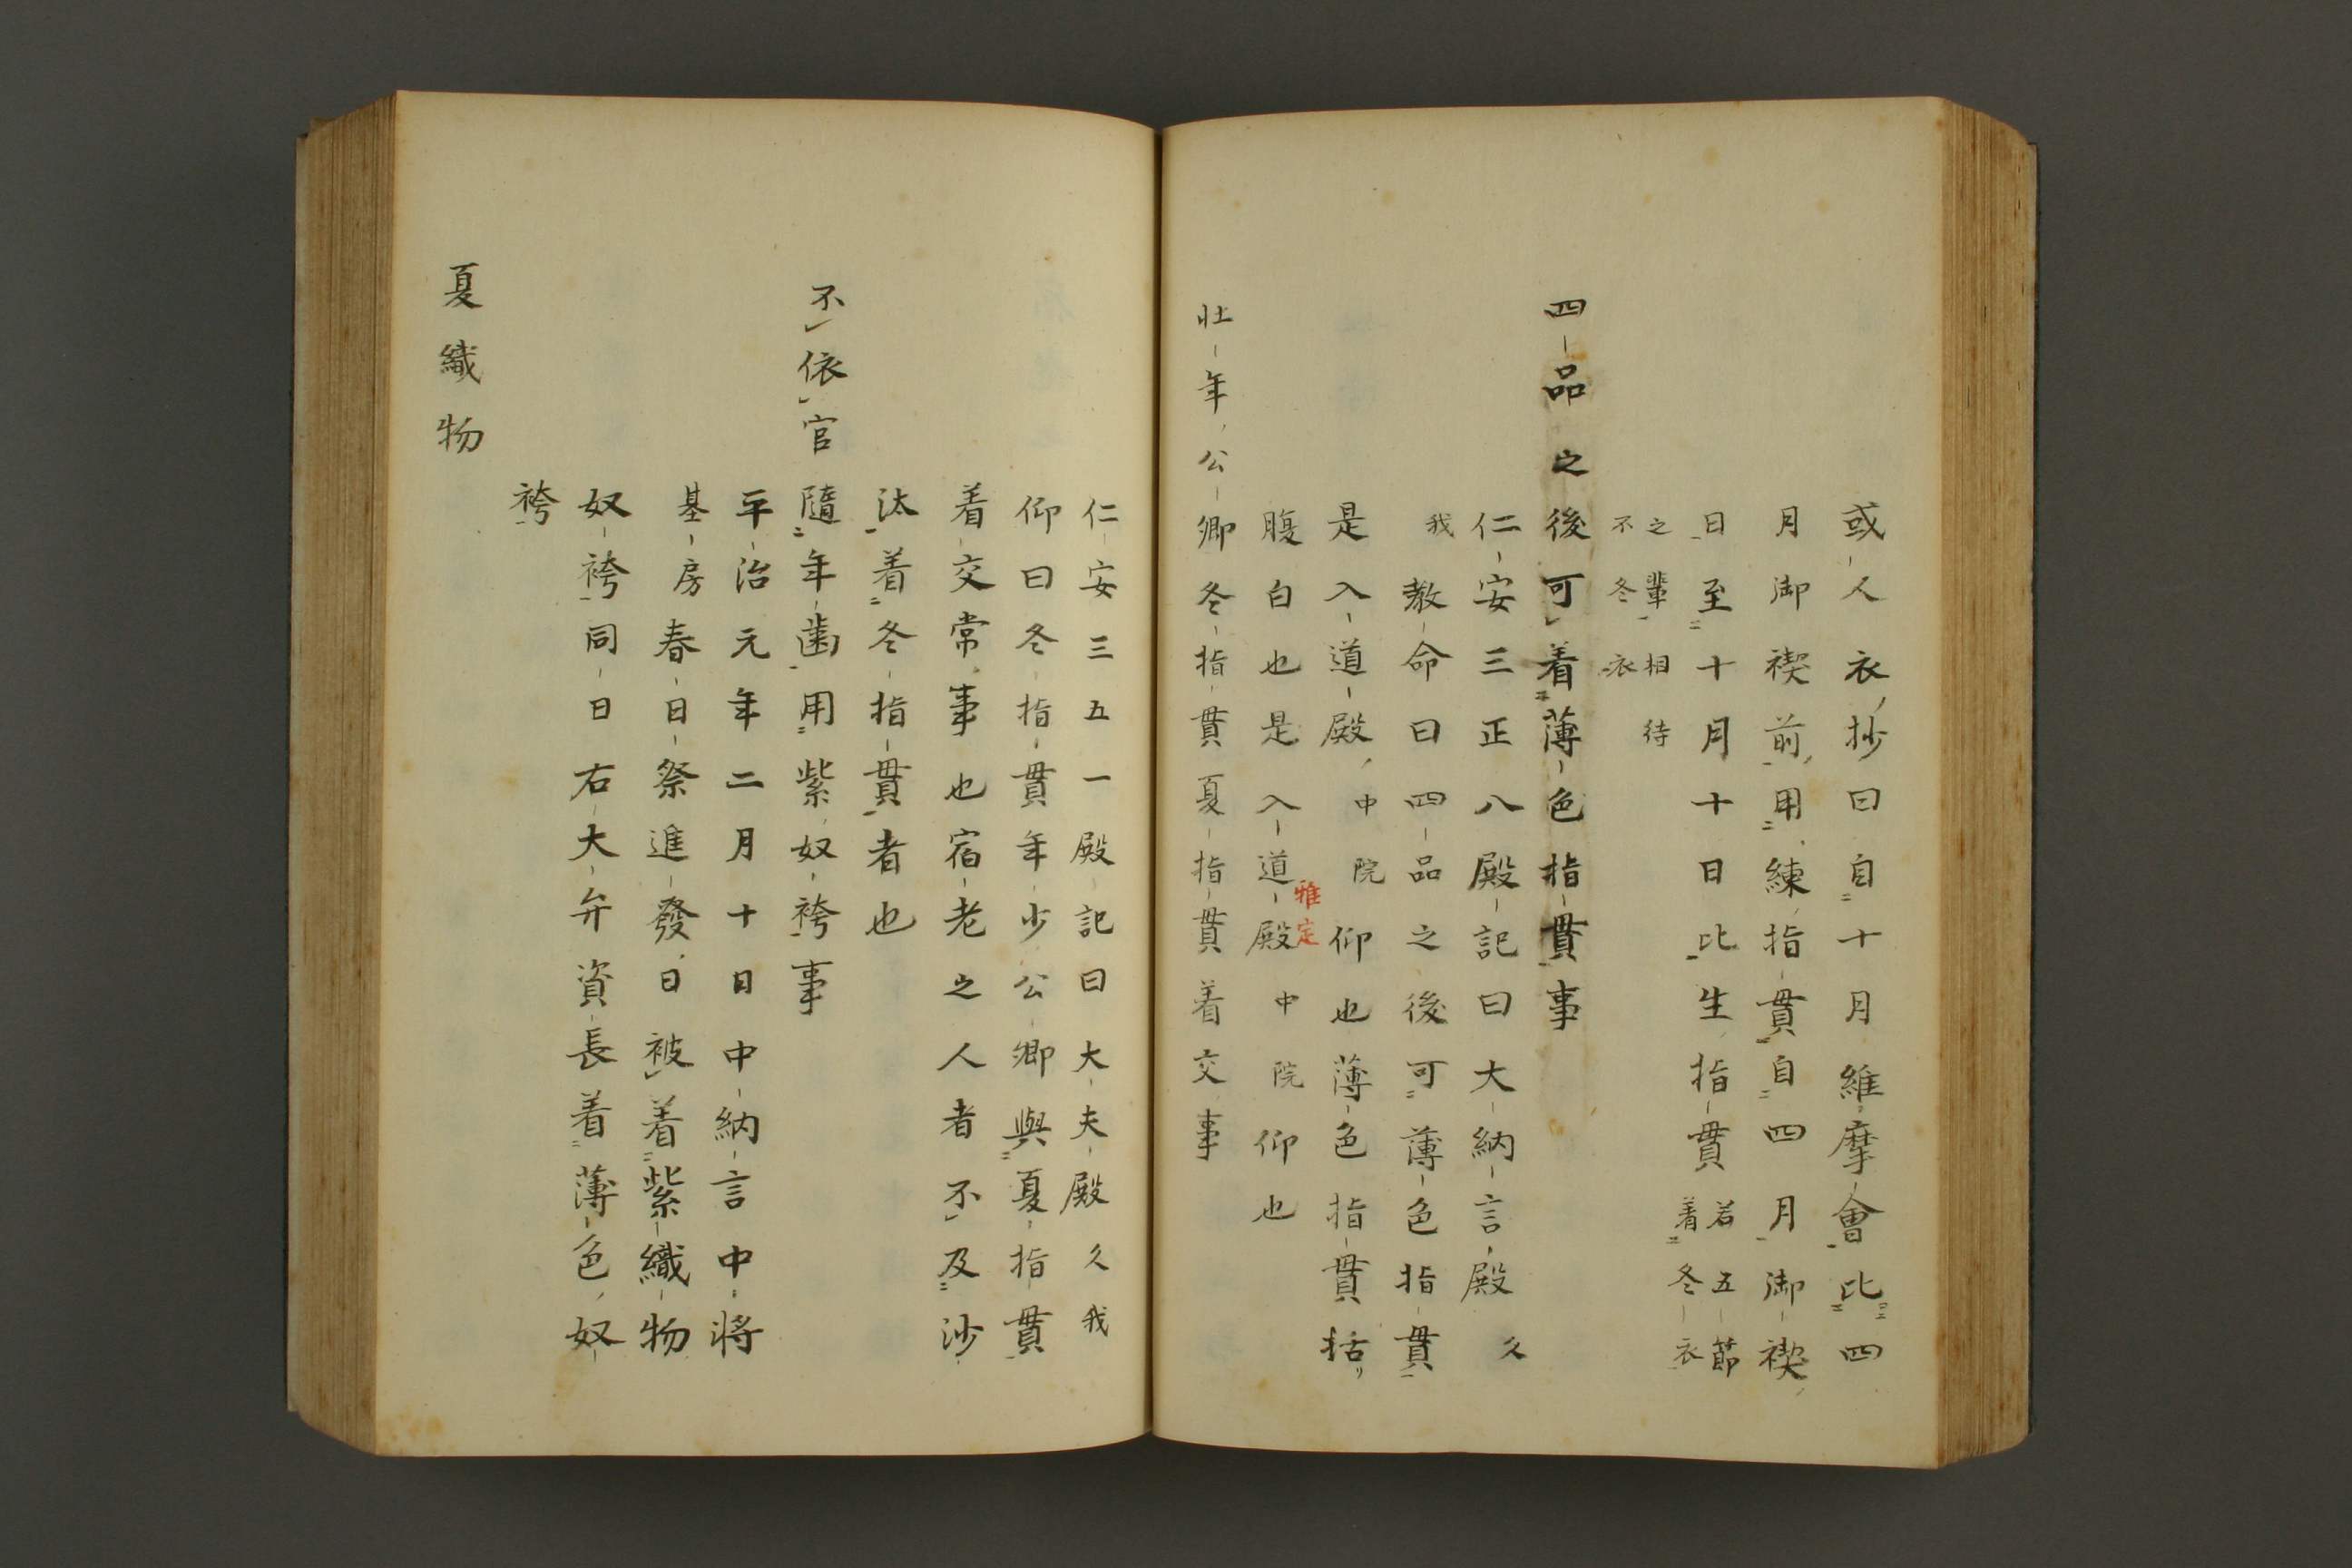 或人衣抄曰自十月維摩會比四
月御禊前用練指貫自四月御禊
日至十月十日比生指貫若五節着冬衣
之輩相待不冬衣
四品之後可着薄色指貫事
仁安三正八殿記曰大納言殿久
我教命曰四品之後可薄色指貫
是入道殿中院仰也薄色指貫括
雅定
腹白也是入道殿中院仰也
壮年公卿冬指貫夏指貫着交事
仁安三五一殿記曰大夫殿久我
仰曰冬指貫年少公卿與夏指貫
着交常事也宿老之人者不及沙
汰着冬指貫者也
不依官隨年齒用紫奴袴事
平治元年二月十日中納言中將
基房春日祭進發日被着紫織物
奴袴同日右大弁資長着薄色奴
袴
夏織物